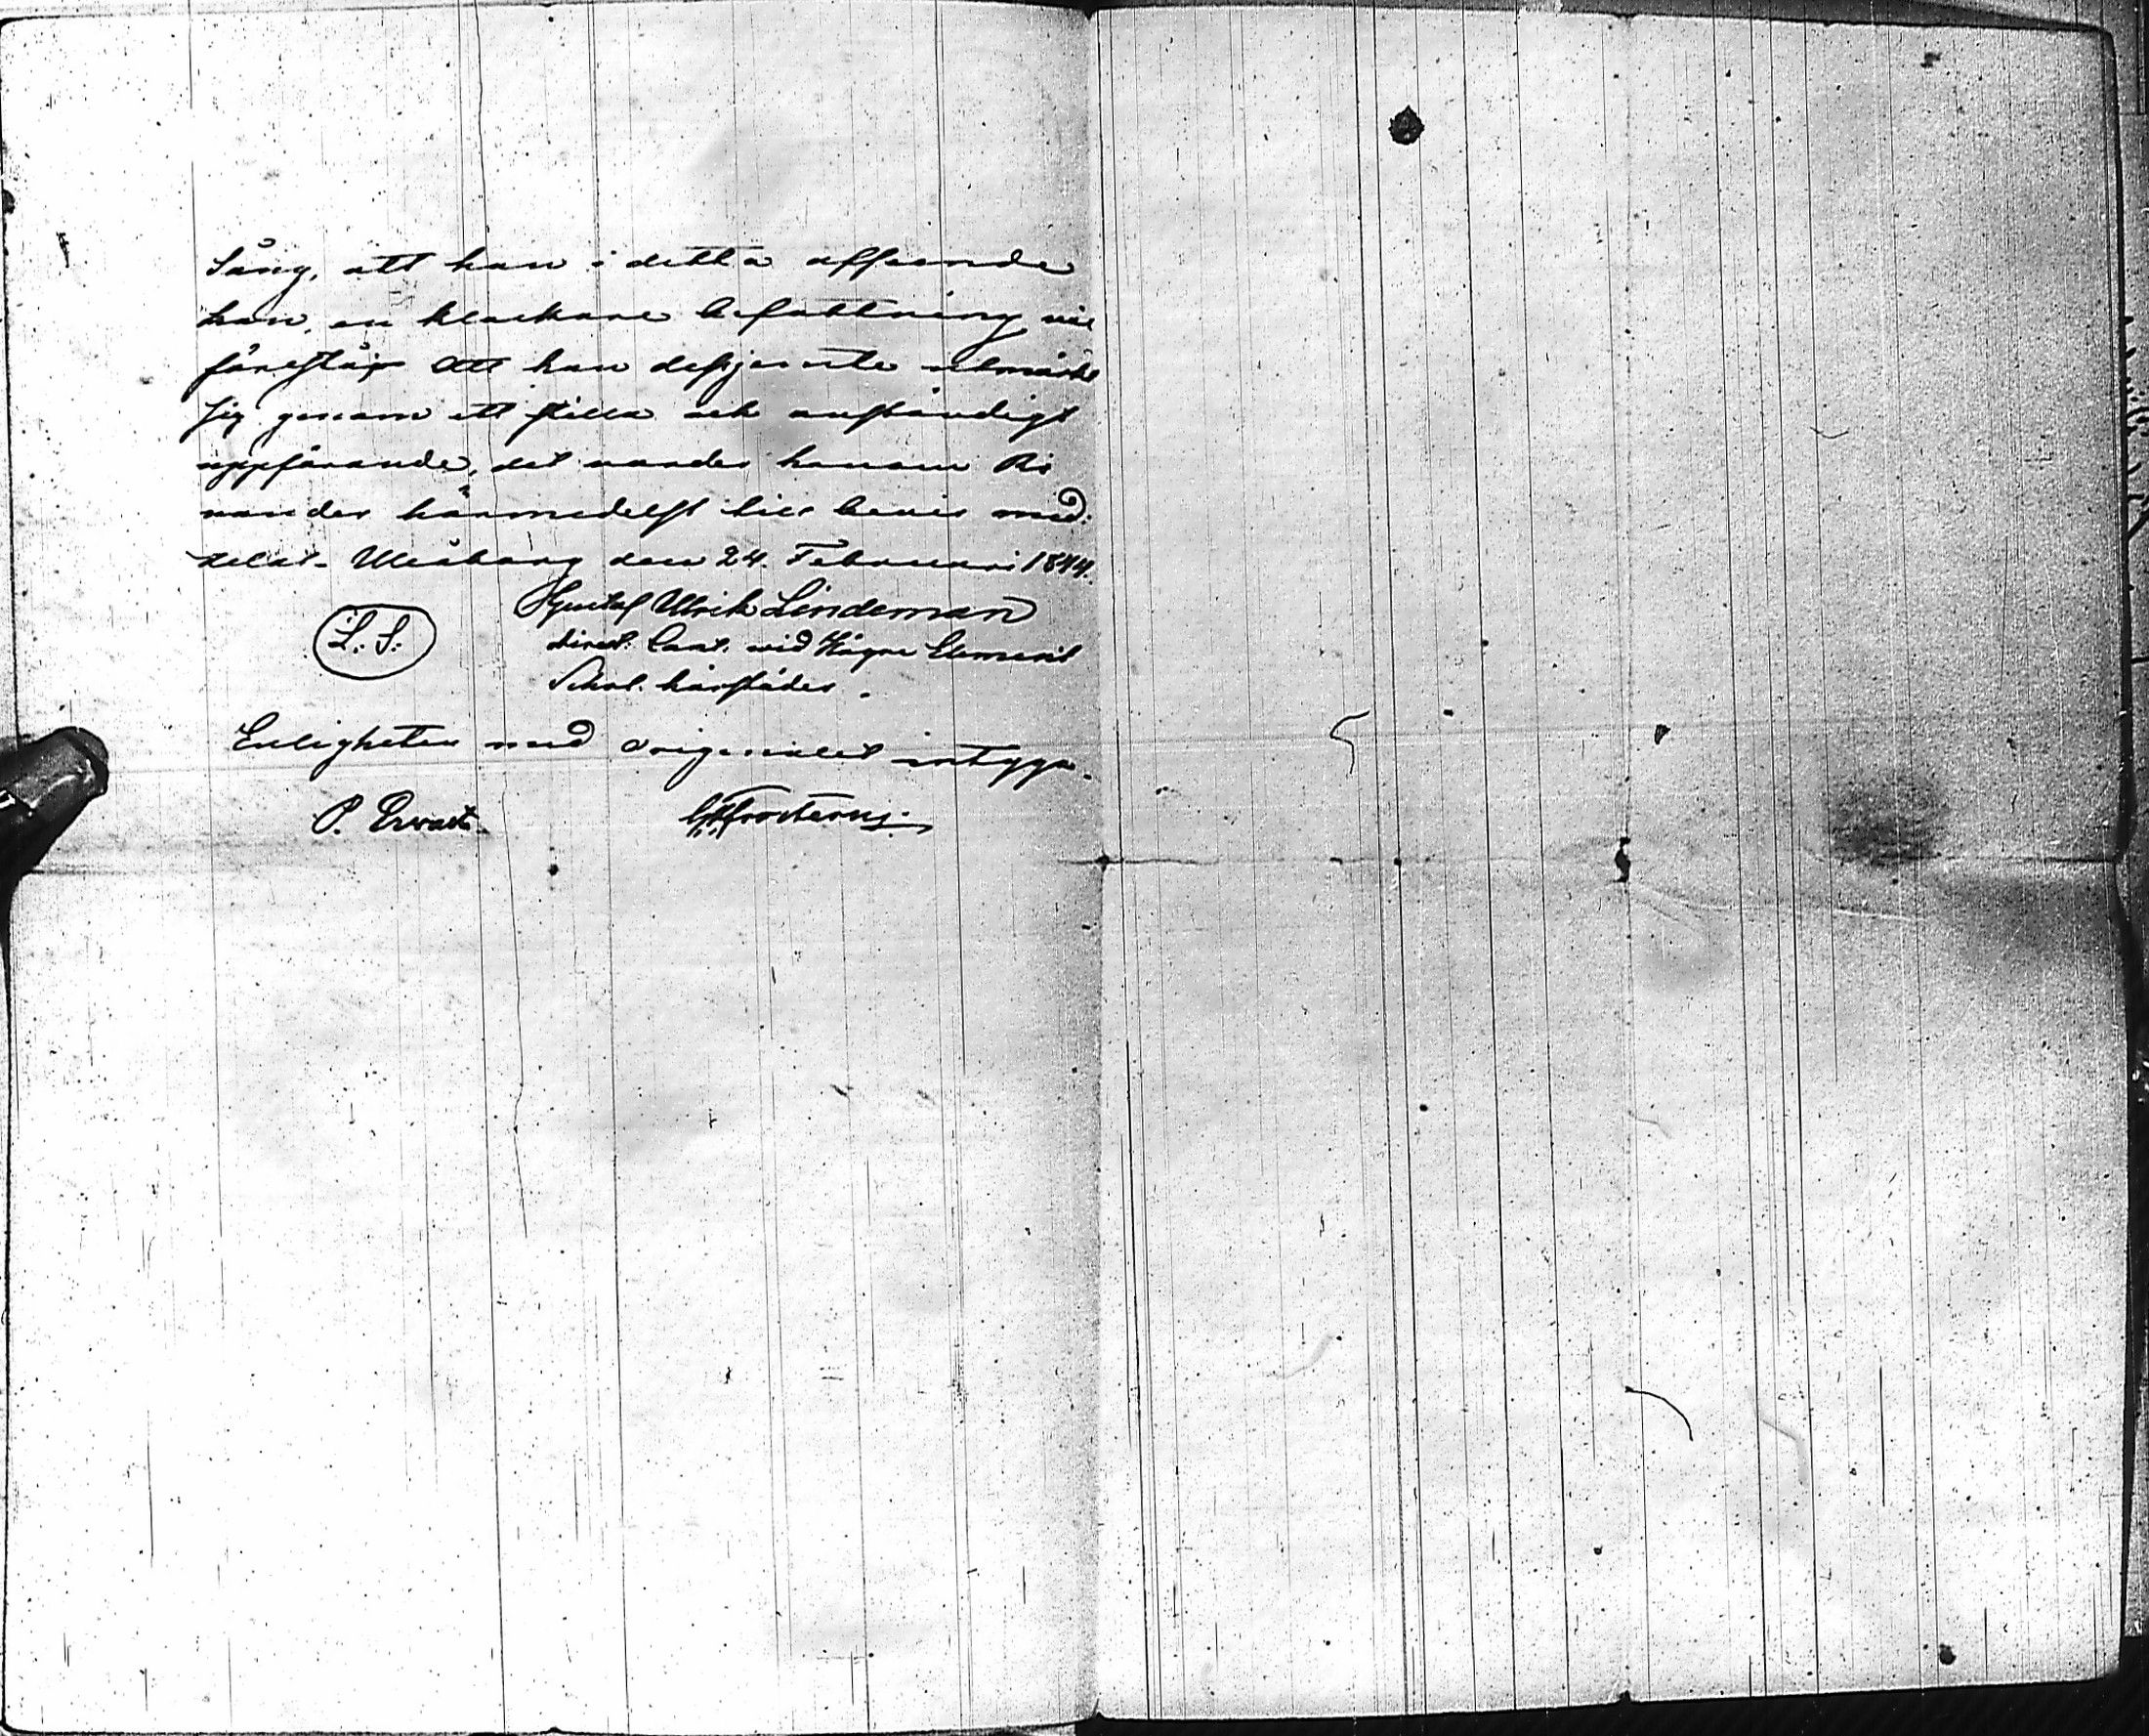 Sång, att han i detta afseende
kan en klockare befattning väl
förestå; Att han dessjemte utmärkt
sig genom ett stilla och anständigt
uppförande, det varder honom Ri
vander härmedelst till bevis med:
delat. Uleåborg den 24. Februari 1844.
Gustaf Ulrik Lindeman
L. S.
direct. Cant. wid Högre Element
Schol. härstädes.
Enligheten med originalet intyga.
P. Ervast. Frosterus.